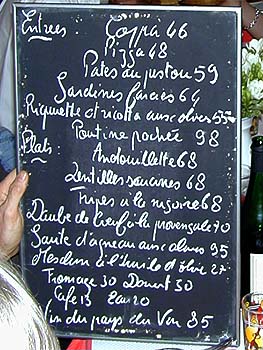 Entrees: Coppa 46
Pizza 48
Pates au pistou 59
Sardines farcies 64
Riquette et ricotta aux olives 55
Poutine pochée 98
Plats: Andouillette 68
Lentilles saucisses 68
Tripes a la niçoise 68
Daube de boeuf à la provençale 70
Sauté d'agneau aux olives 95
Mesclun à l'huile d'olive 27
Fromage 30 Dessert 30
Café 13 Eau 20
Vin du pays du Var 85